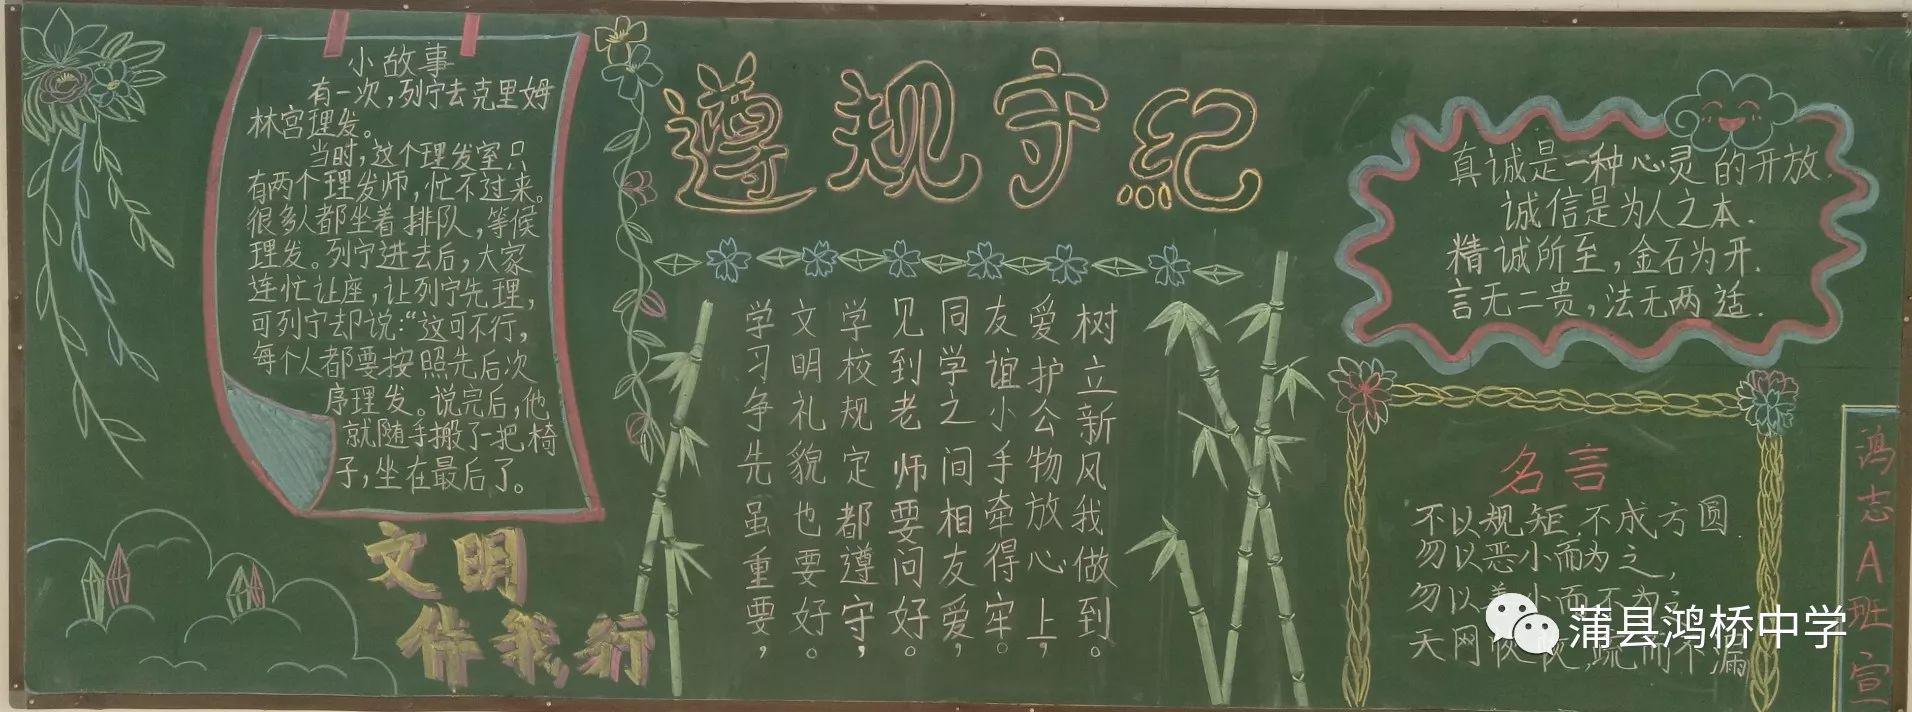 小故事
有一次,列宁去克里姆
林宫理发。
当时,这个理发室只
有两个理发师,忙不过来。
很多人都坐着排队,等候
理发。列宁进去后,大家
连忙让座,让列宁先理,
可列宁却说:“这可不行,
每个人都要按照先后次
序理发。说完后,他
就随手搬了一把椅
子,坐在最后了。
文明
伴我行
遵规守纪
学习争先虽重要,
文明礼貌也要好。
学校规定都遵守,
见到老师要问好。
同学之间相友爱,
友谊小手牵得牢。
爱护公物放心上,
树立新风我做到。
真诚是一种心灵的开放.
诚信是为人之本.
精诚所至,金石为开.
言无二贵,法无两适.
名言
不以规矩不成方圆.
勿以恶小而为之,
勿以善小而不为
天网恢恢,疏而不漏
鸿志A班宣
蒲县鸿桥中学